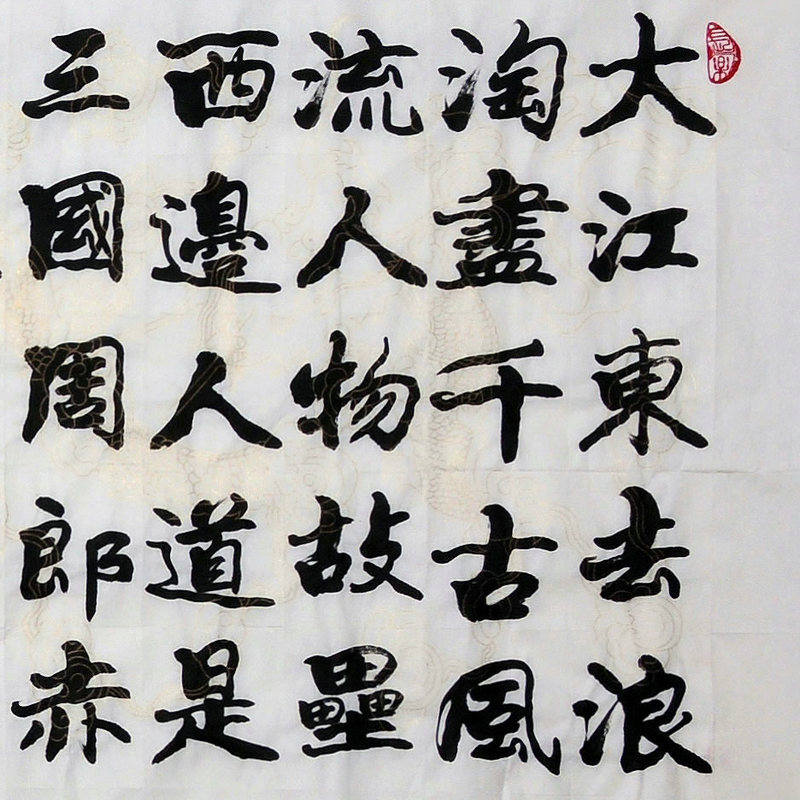 大江東去浪
淘盡千古風
流人物故壘
西邊人道是
三國周郎赤